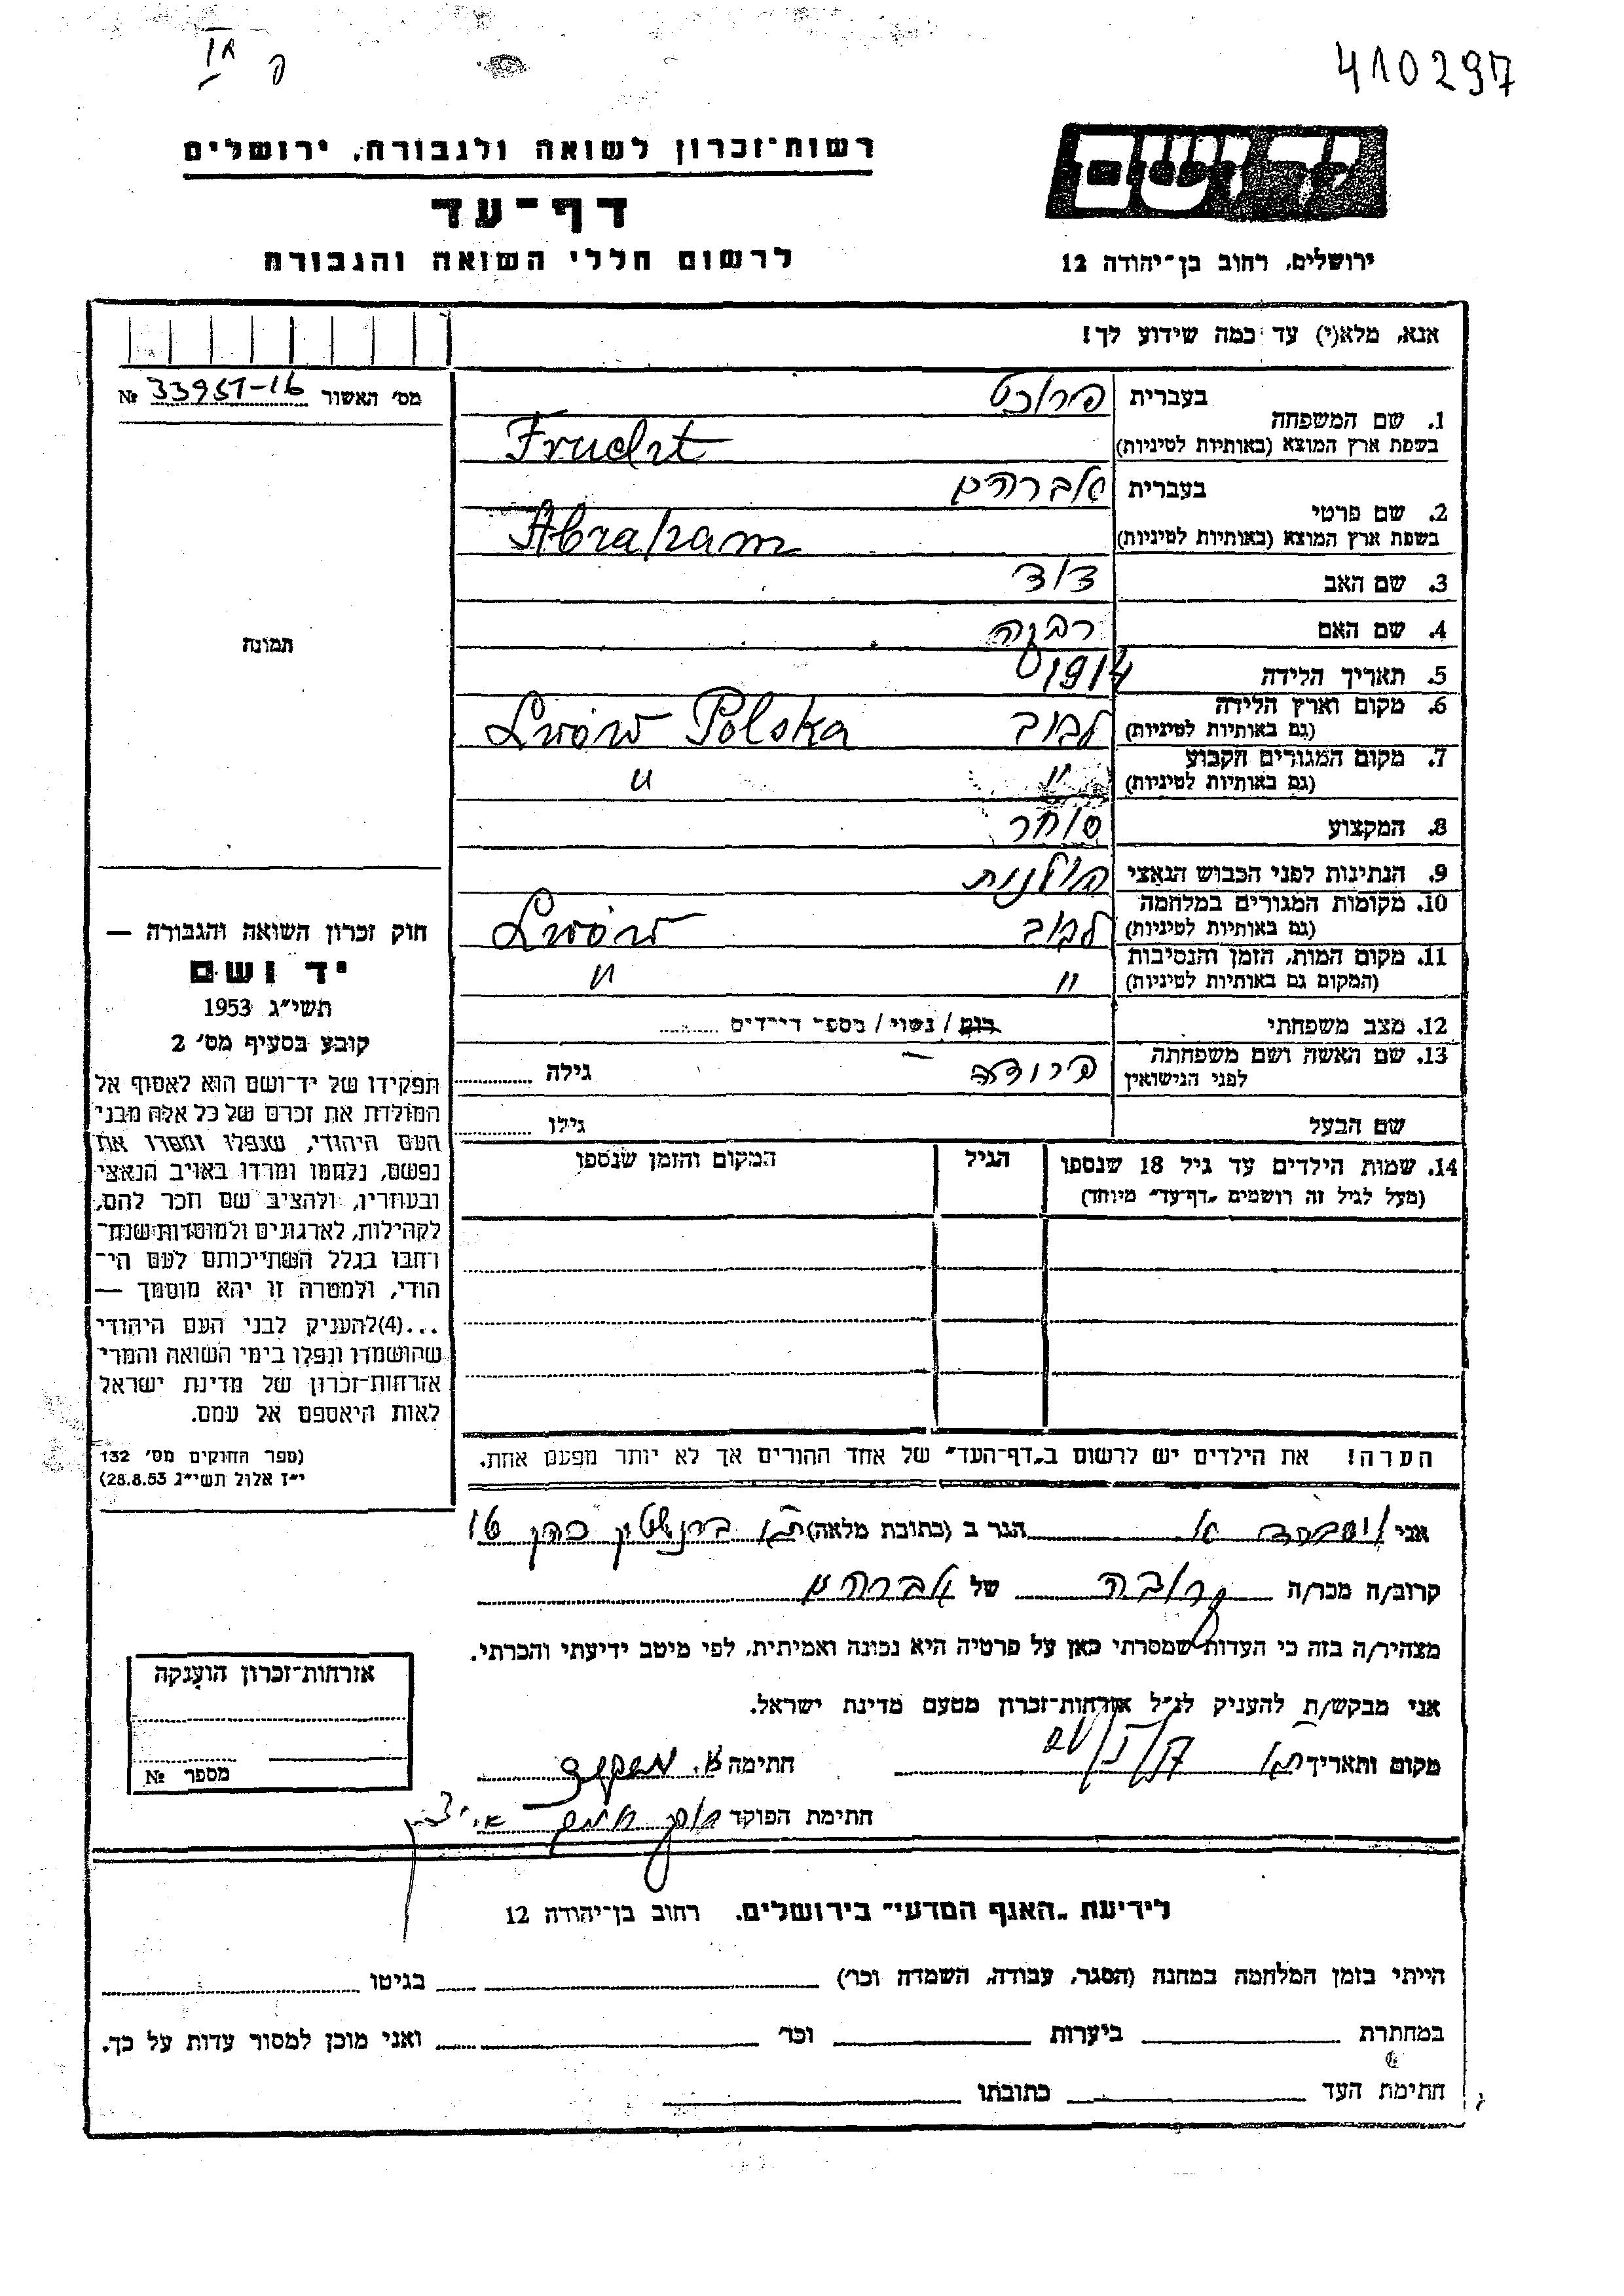 410297
רשות־זכרון לשואה ולגבורה, ירושלים
דף־עד
לרשום חללי השואה והגבורה
יד ושם
ירושלים, רחוב בן־יהודה 12
אנא, מלא(י) עד כמה שידוע לך!
מס' האשור 33951-16 №
תמונה
1. שם המשפחה
בעברית פרוכט
בשפת ארץ המוצא (באותיות לטיניות) Frucht
2. שם פרטי
בעברית אברהם
בשפת ארץ המוצא (באותיות לטיניות) Abraham
3. שם האב דוד
4. שם האם רבקה
5. תאריך הלידה 1914
6. מקום וארץ הלידה
(גם באותיות לטיניות) לבוב Lwów Polska
7. מקום המגורים הקבוע
(גם באותיות לטיניות) " "
8. המקצוע סוחר
9. הנתינות לפני הכבוש הנאצי פולנית
10. מקומות המגורים במלחמה
(גם באותיות לטיניות) לבוב Lwów
11. מקום המות, הזמן והנסיבות
(המקום גם באותיות לטיניות) " "
12. מצב משפחתי רווק / נשוי / מספר ילדים
13. שם האשה ושם משפחתה
לפני הנישואין פרידה – גילה
שם הבעל גילו
14. שמות הילדים עד גיל 18 שנספו
(מעל לגיל זה רושמים "דף־עד" מיוחד)
הגיל
המקום והזמן שנספו
הערה! את הילדים יש לרשום ב"דף־העד" של אחד ההורים אך לא יותר מפעם אחת.
חוק זכרון השואה והגבורה —
יד ושם
תשי"ג 1953
קובע בסעיף מס' 2
תפקידו של יד־ושם הוא לאסוף אל
המולדת את זכרם של כל אלה מבני
העם היהודי, שנפלו ומסרו את
נפשם, נלחמו ומרדו באויב הנאצי
ובעוזריו, ולהציב שם וזכר להם,
לקהילות, לארגונים ולמוסדות שנח־
רבו בגלל השתייכותם לעם הי־
הודי, ולמטרה זו יהא מוסמך —
...(4)להעניק לבני העם היהודי
שהושמדו ונפלו בימי השואה והמרי
אזרחות־זכרון של מדינת ישראל
לאות היאספם אל עמם.
(ספר החוקים מס' 132
י"ז אלול תשי"ג 28.8.53)
אני הגר ב (כתובת מלאה) ת"א ברנשטין כהן 16
קרוב/ה מכר/ה קרובה של אברהם
מצהיר/ה בזה כי העדות שמסרתי כאן על פרטיה היא נכונה ואמיתית, לפי מיטב ידיעתי והכרתי.
אני מבקש/ת להעניק לנ"ל אזרחות־זכרון מטעם מדינת ישראל.
מקום ותאריך ת"א חתימה
חתימת הפוקד
אזרחות־זכרון הוענקה
מספר №
לידיעת "האגף המדעי" בירושלים, רחוב בן־יהודה 12
הייתי בזמן המלחמה במחנה (הסגר, עבודה, השמדה וכו') בגיטו
במחתרת ביערות וכו' ואני מוכן למסור עדות על כך.
חתימת העד כתובתו